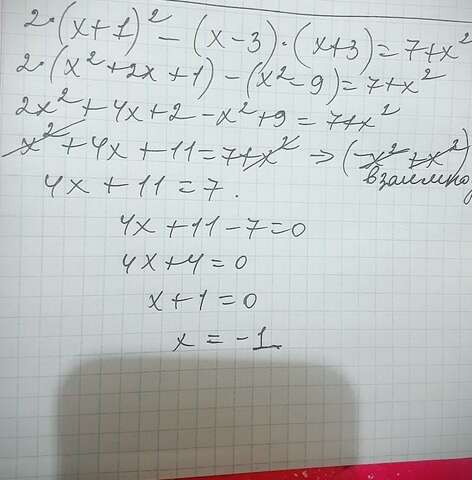 2·(x+1)² − (x−3)·(x+3) = 7+x²
2·(x²+2x+1) − (x²−9) = 7+x²
2x²+4x+2−x²+9 = 7+x²
x²+4x+11 = 7+x² ⇒ (−x²+x²)
взаимно
4x+11 = 7.
4x+11−7=0
4x+4=0
x+1=0
x = −1